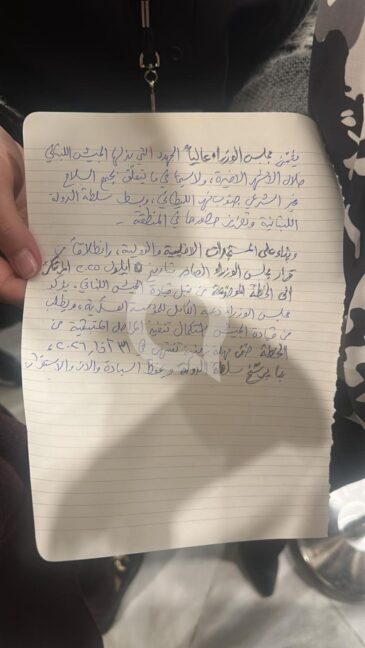 يثمّن مجلس الوزراء عالياً الجهود التي بذلها الجيش اللبناني
خلال الأشهر الاخيرة، ولاسيما في ما يتعلق بجمع السلاح
غير الشرعي جنوب نهر الليطاني، وبسط سلطة الدولة
اللبنانية وتعزيز حضورها في المنطقة -
وبناء على المستجدات الاقليمية والدولية، وانطلاقاً من
قرار مجلس الوزراء الصادر بتاريخ ٥ ايلول ٢٠٢٥
الى الخطة الموضوعة من قبل قيادة الجيش اللبناني، يؤكد
مجلس الوزراء دعمه الكامل للمؤسسة العسكرية، ويطلب
من قيادة الجيش استكمال تنفيذ المراحل المتبقية من
الخطة ضمن مهلة زمنية تنتهي في ٣١ آذار ٢٠٢٦،
بما يرسّخ سلطة الدولة ويحفظ السيادة والامن والاستقرار